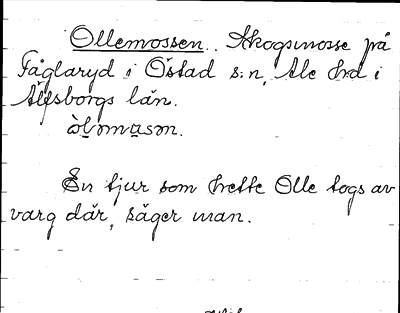 Ollemossen. Skogsmosse på
Fåglaryd i Östad s:n, Ale hrd i
Älfsborgs län.
En tjur som hette Olle togs av
varg där, säger man.